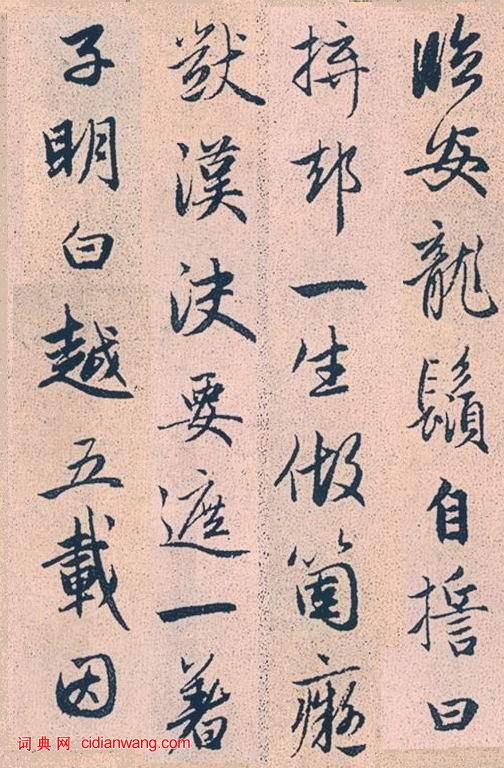 臨安龍鬚自誓曰
拚却一生做箇癡
獃漢決要遮一著
子明白越五載因
词典网 cidianwang.com